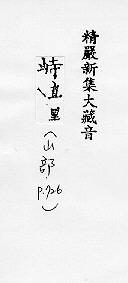 精嚴新集大藏音
峙直里(山部
p.726)